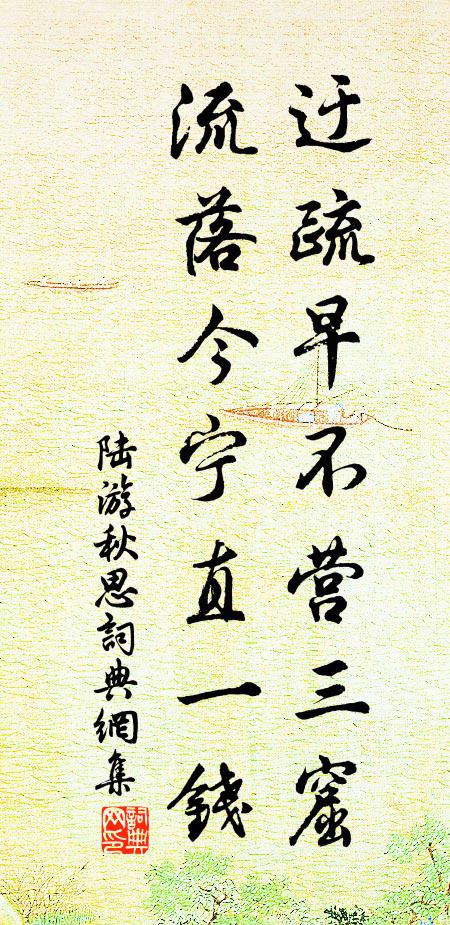 迂疏早不营三窟
流落今宁直一錢
陆游秋思詞典網集
詞典
网印